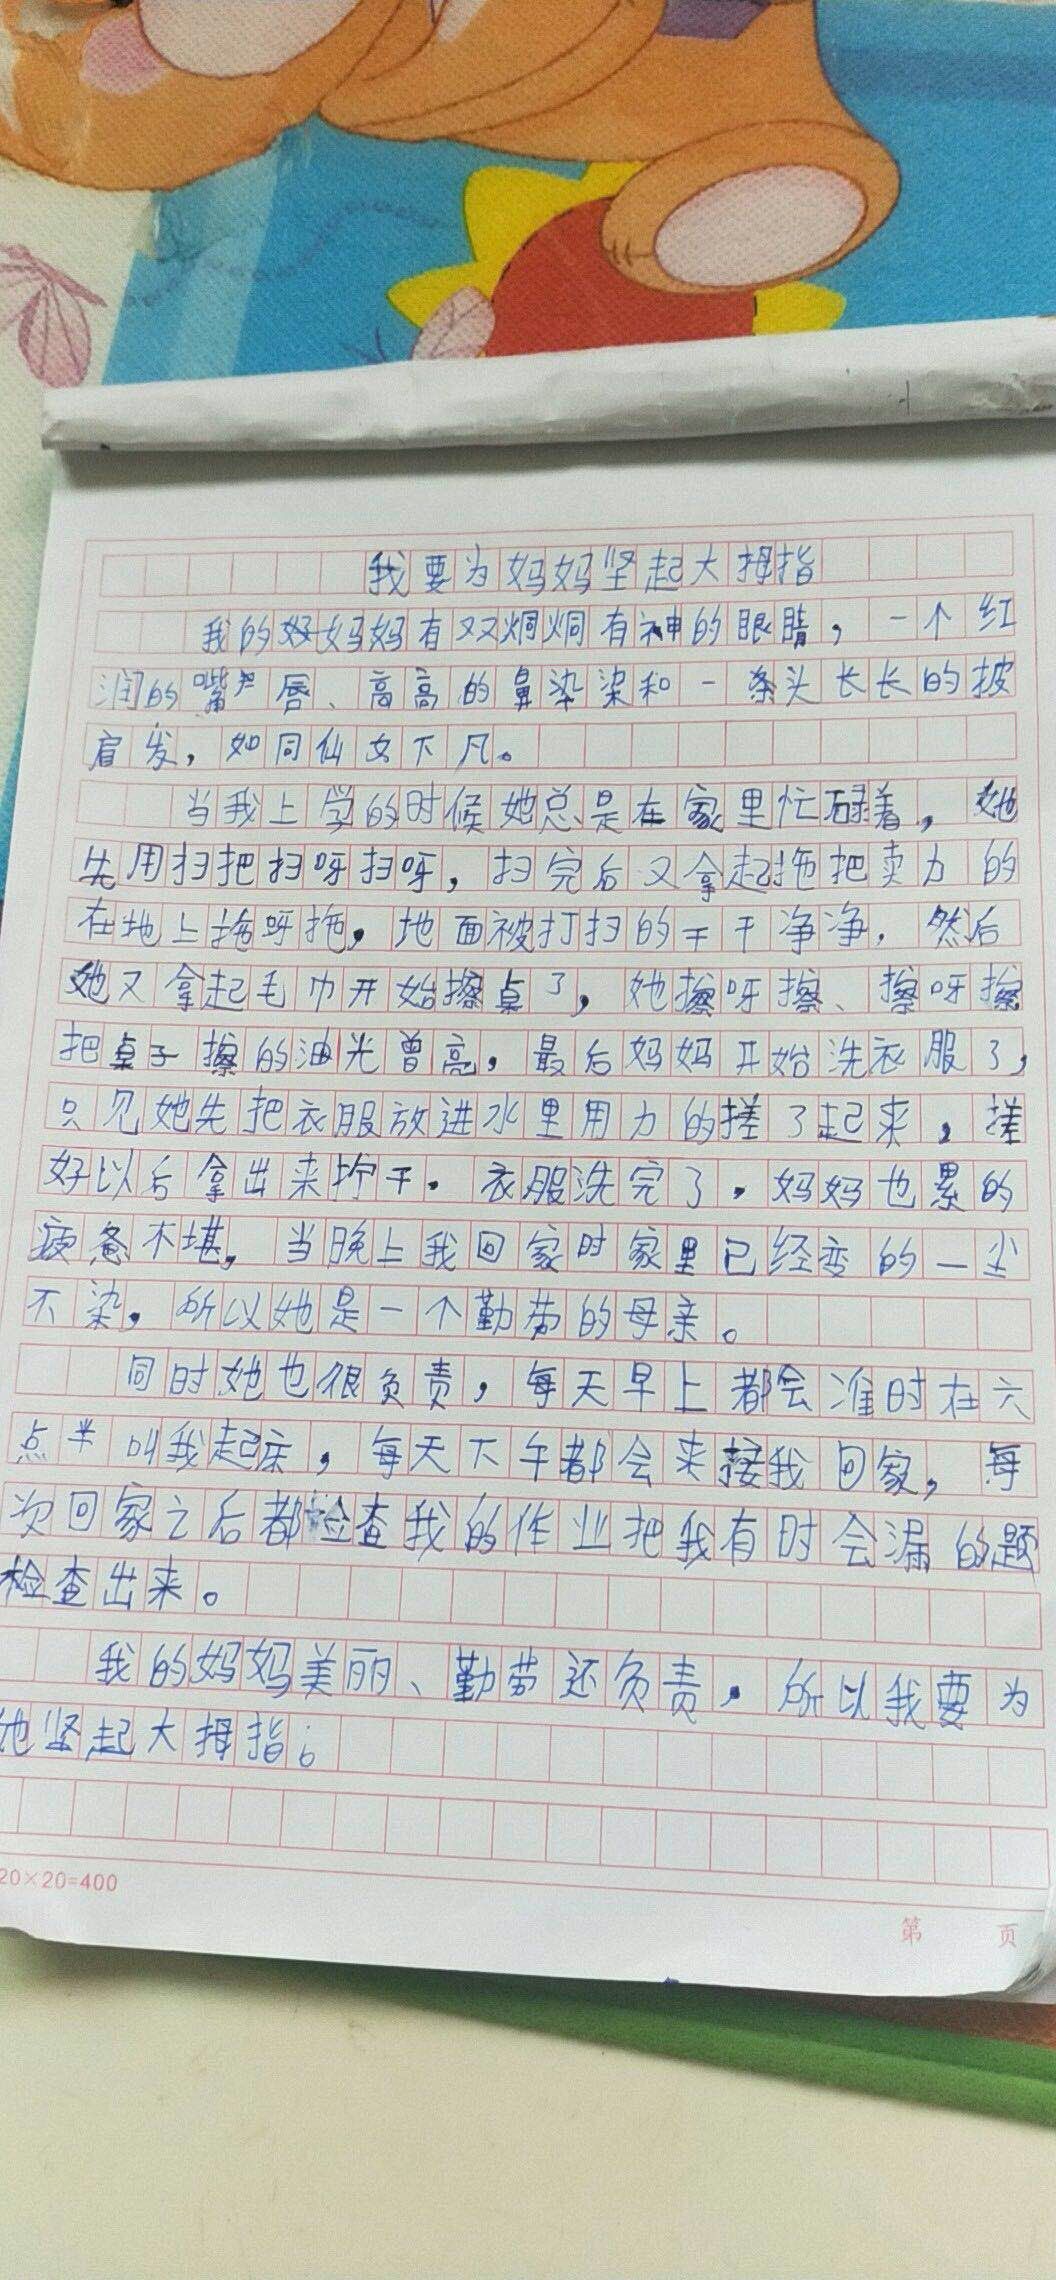 我要为妈妈坚起大拇指
我的好妈妈有双炯炯有神的眼睛，一个红
润的嘴唇、高高的鼻染染和一条头长长的披
肩发，如同仙女下凡。
当我上学的时候她总是在家里忙碌着，她
先用扫把扫呀扫呀，扫完后又拿起拖把卖力的
在地上拖呀拖，地面被打扫的干干净净，然后
她又拿起毛巾开始擦桌了，她擦呀擦、擦呀擦
把桌子擦的油光曾亮，最后妈妈开始洗衣服了，
只见她先把衣服放进水里用力的搓了起来，搓
好以后拿出来拧干。衣服洗完了，妈妈也累的
疲惫不堪，当晚上我回家时家里已经变的一尘
不染，所以她是一个勤劳的母亲。
同时她也很负责，每天早上都会准时在六
点半叫我起床，每天下午都会来接我回家，每
次回家之后都检查我的作业把我有时会漏的题
检查出来。
我的妈妈美丽、勤劳还负责，所以我要为
她坚起大拇指；
20×20=400
第 页